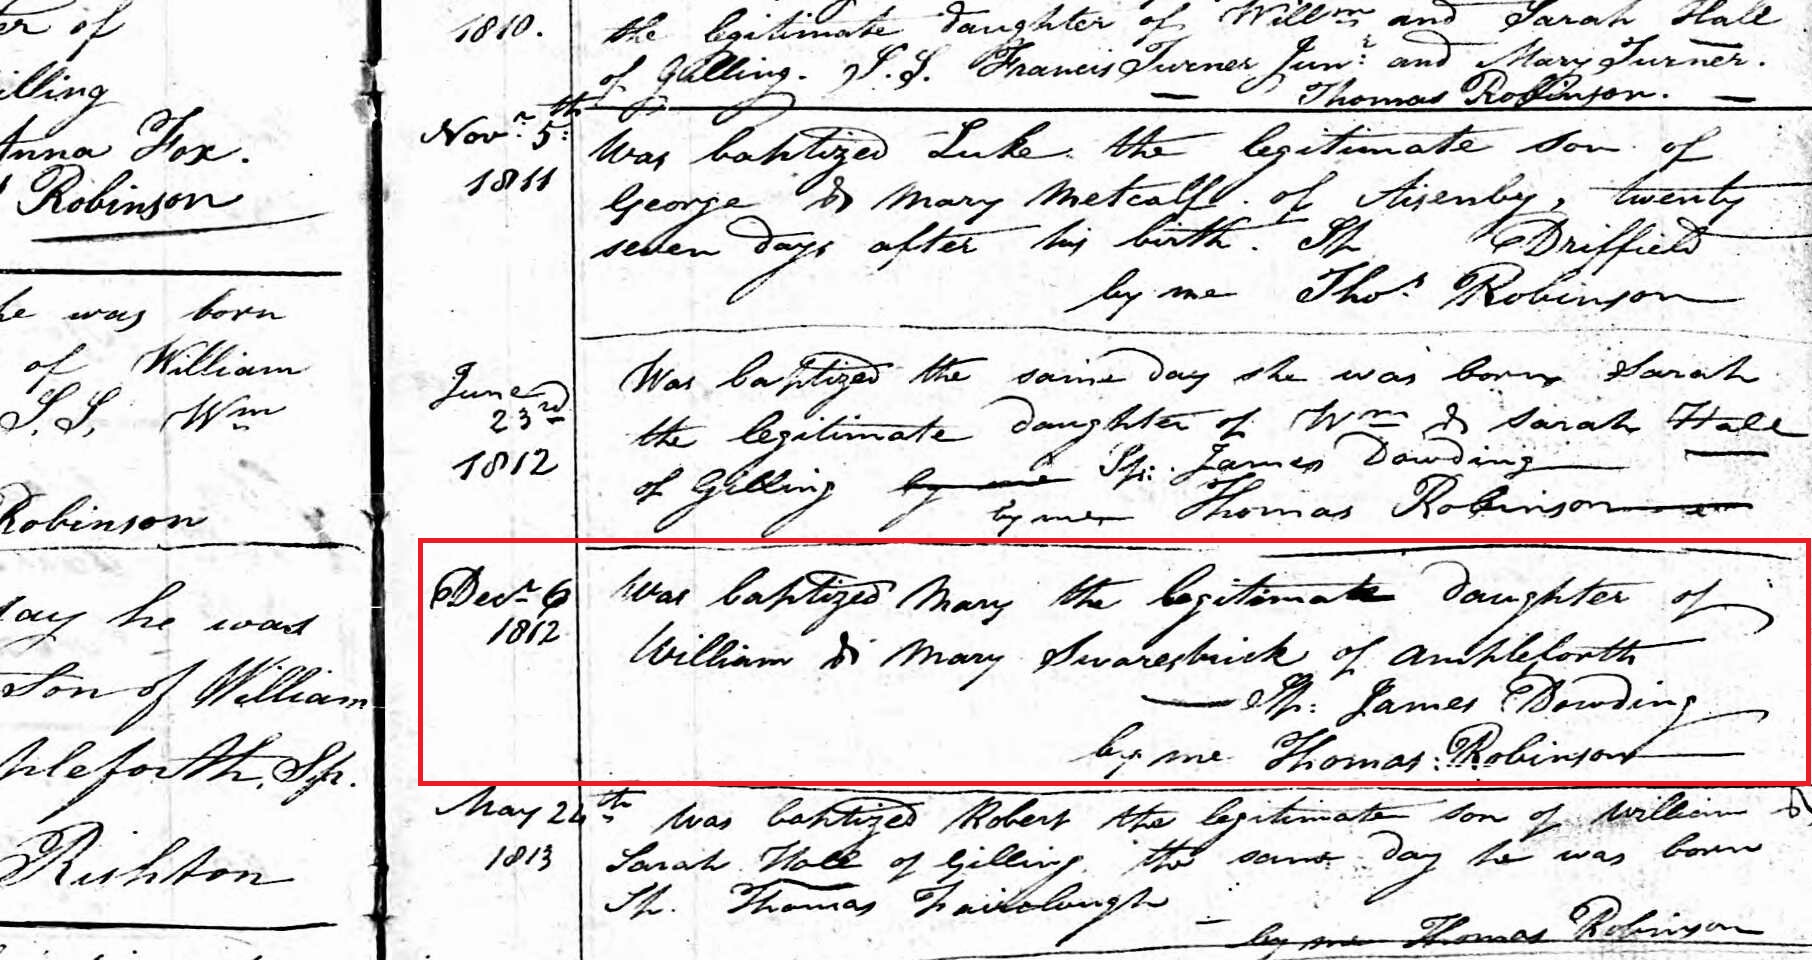 er of
illing
Anna Fox.
Robinson
he was born
of William
S.S. Wm
Robinson
day he was
son of William
pleforth. Sp.
Rishton
1810.
the legitimate daughter of Willm and Sarah Hall
of Gilling. S.S. Francis Turner Junr and Mary Turner.
Thomas Robinson.
Novr 5th
1811
Was baptized Luke the legitimate son of
George & Mary Metcalf of Aisenby, twenty
seven days after his birth. Sp Driffield
by me Thos Robinson
June
23rd
1812
Was baptized the same day she was born Sarah
the legitimate daughter of Wm & Sarah Hall
of Gilling by me Sp: James Dowding
by me Thomas Robinson
Decr 6
1812
Was baptized Mary the legitimate daughter of
William & Mary Swaresbrick of Ampleforth
Sp: James Dowding
by me Thomas Robinson
May 24th
1813
Was baptized Robert the legitimate son of William &
Sarah Hall of Gilling the same day he was born
Sp. Thomas Fairclough
by me Thomas Robinson